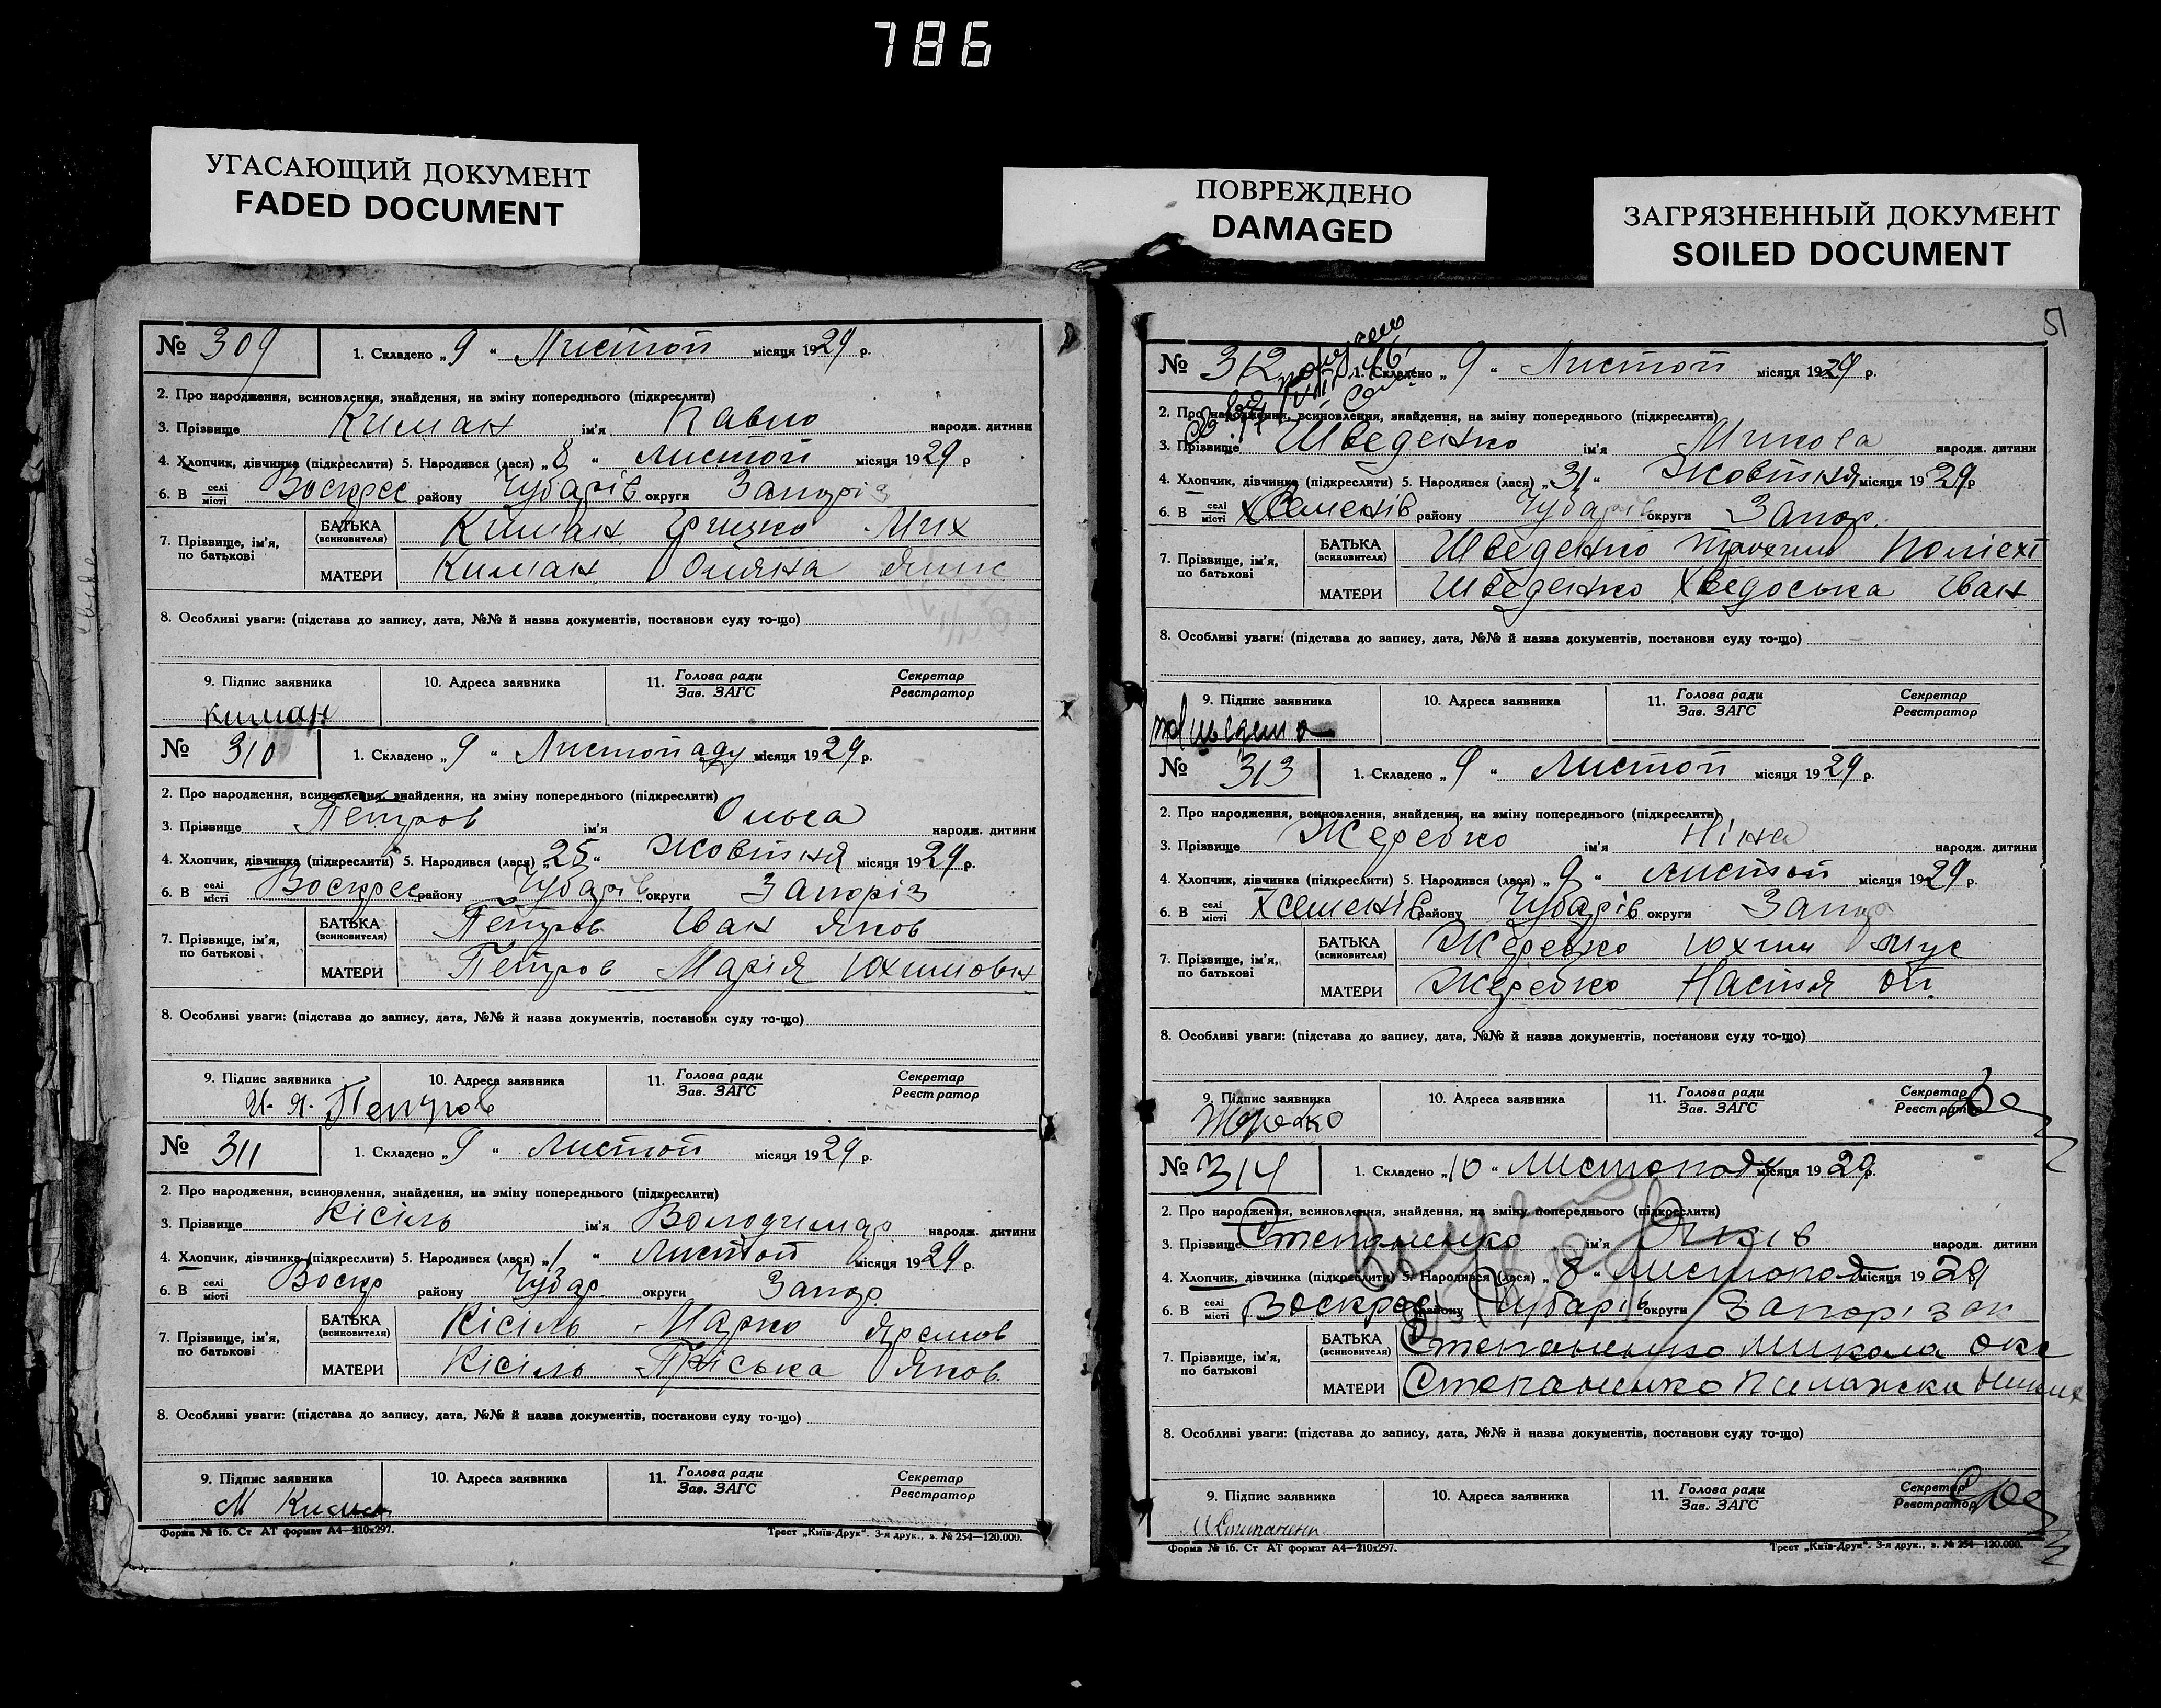 786
УГАСАЮЩИЙ ДОКУМЕНТ
FADED DOCUMENT
ПОВРЕЖДЕНО
DAMAGED
ЗАГРЯЗНЕННЫЙ ДОКУМЕНТ
SOILED DOCUMENT
№ 309 1. Складено „9“ Листоп місяця 1929 р.
2. Про народження, всиновлення, знайдення, на зміну попереднього (підкреслити)
3. Прізвище Киман ім'я Павло народж. дитини
4. Хлопчик, дівчинка (підкреслити) 5. Народився (лася) „8“ листоп місяця 1929 р
6. В селі місті Воскрес району Чубарів округи Запоріз
7. Прізвище, ім'я, по батькові
БАТЬКА (всиновителя) Киман Грицко Мих
МАТЕРИ Киман Оляна
8. Особливі уваги: (підстава до запису, дата, №№ й назва документів, постанови суду то-що)
9. Підпис заявника 10. Адреса заявника 11. Голова ради Зав. ЗАГС Секретар Реєстратор
Киман
№ 310 1. Складено „9“ Листопаду місяця 1929 р.
2. Про народження, всиновлення, знайдення, на зміну попереднього (підкреслити)
3. Прізвище Петров ім'я Ольга народж. дитини
4. Хлопчик, дівчинка (підкреслити) 5. Народився (лася) „25“ Жовтня місяця 1929 р.
6. В селі місті Воскрес району Чубарів округи Запоріз
7. Прізвище, ім'я, по батькові
БАТЬКА (всиновителя) Петров Іван Яков
МАТЕРИ Петров Марія Юхимовн
8. Особливі уваги: (підстава до запису, дата, №№ й назва документів, постанови суду то-що)
9. Підпис заявника 10. Адреса заявника 11. Голова ради Зав. ЗАГС Секретар Реєстратор
И. Я. Петров
№ 311 1. Складено „9“ Листоп місяця 1929 р.
2. Про народження, всиновлення, знайдення, на зміну попереднього (підкреслити)
3. Прізвище Кісіль ім'я Володимар народж. дитини
4. Хлопчик, дівчинка (підкреслити) 5. Народився (лася) „1“ Листоп місяця 1929 р.
6. В селі місті Воскр району Чубар. округи Запор.
7. Прізвище, ім'я, по батькові
БАТЬКА (всиновителя) Кісіль Марко Яремов
МАТЕРИ Кісіль Пріська Яков
8. Особливі уваги: (підстава до запису, дата, №№ й назва документів, постанови суду то-що)
9. Підпис заявника 10. Адреса заявника 11. Голова ради Зав. ЗАГС Секретар Реєстратор
М
Форма № 16. Ст АТ формат А4—210х297. Трест „Київ-Друк“. 3-я друк., з. № 254—120.000.
51
№ 312 1. Складено „9“ Листоп місяця 1929 р.
2. Про народження, всиновлення, знайдення, на зміну попереднього (підкреслити)
3. Прізвище Шведенко ім'я Микола народж. дитини
4. Хлопчик, дівчинка (підкреслити) 5. Народився (лася) „31“ Жовтня місяця 1929 р
6. В селі місті Семенів району Чубарів округи Запор.
7. Прізвище, ім'я, по батькові
БАТЬКА (всиновителя) Шведенко Трохим
МАТЕРИ Шведенко Хведоська Іван
8. Особливі уваги: (підстава до запису, дата, №№ й назва документів, постанови суду то-що)
9. Підпис заявника 10. Адреса заявника 11. Голова ради Зав. ЗАГС Секретар Реєстратор
№ 313 1. Складено „9“ Листоп місяця 1929 р.
2. Про народження, всиновлення, знайдення, на зміну попереднього (підкреслити)
3. Прізвище Жеребко ім'я Ніна народж. дитини
4. Хлопчик, дівчинка (підкреслити) 5. Народився (лася) „9“ Листоп місяця 1929 р.
6. В селі місті Хсеменів району Чубарів округи Запор
7. Прізвище, ім'я, по батькові
БАТЬКА (всиновителя) Жеребко Юхим
МАТЕРИ Жеребко Настя
8. Особливі уваги: (підстава до запису, дата, №№ й назва документів, постанови суду то-що)
9. Підпис заявника 10. Адреса заявника 11. Голова ради Зав. ЗАГС Секретар Реєстратор
№ 314 1. Складено „10“ Листопаду місяця 1929 р.
2. Про народження, всиновлення, знайдення, на зміну попереднього (підкреслити)
3. Прізвище Степаненко ім'я Яків народж. дитини
4. Хлопчик, дівчинка (підкреслити) 5. Народився (лася) „8“ Листопад місяця 1929
6. В селі місті Воскрес району Чубарів округи Запорізок
7. Прізвище, ім'я, по батькові
БАТЬКА (всиновителя) Степаненко Микола
МАТЕРИ Степаненко
8. Особливі уваги: (підстава до запису, дата, №№ й назва документів, постанови суду то-що)
9. Підпис заявника 10. Адреса заявника 11. Голова ради Зав. ЗАГС Секретар Реєстратор
Форма № 16. Ст АТ формат А4—210х297. Трест „Київ-Друк“. 3-я друк., з. № 254—120.000.